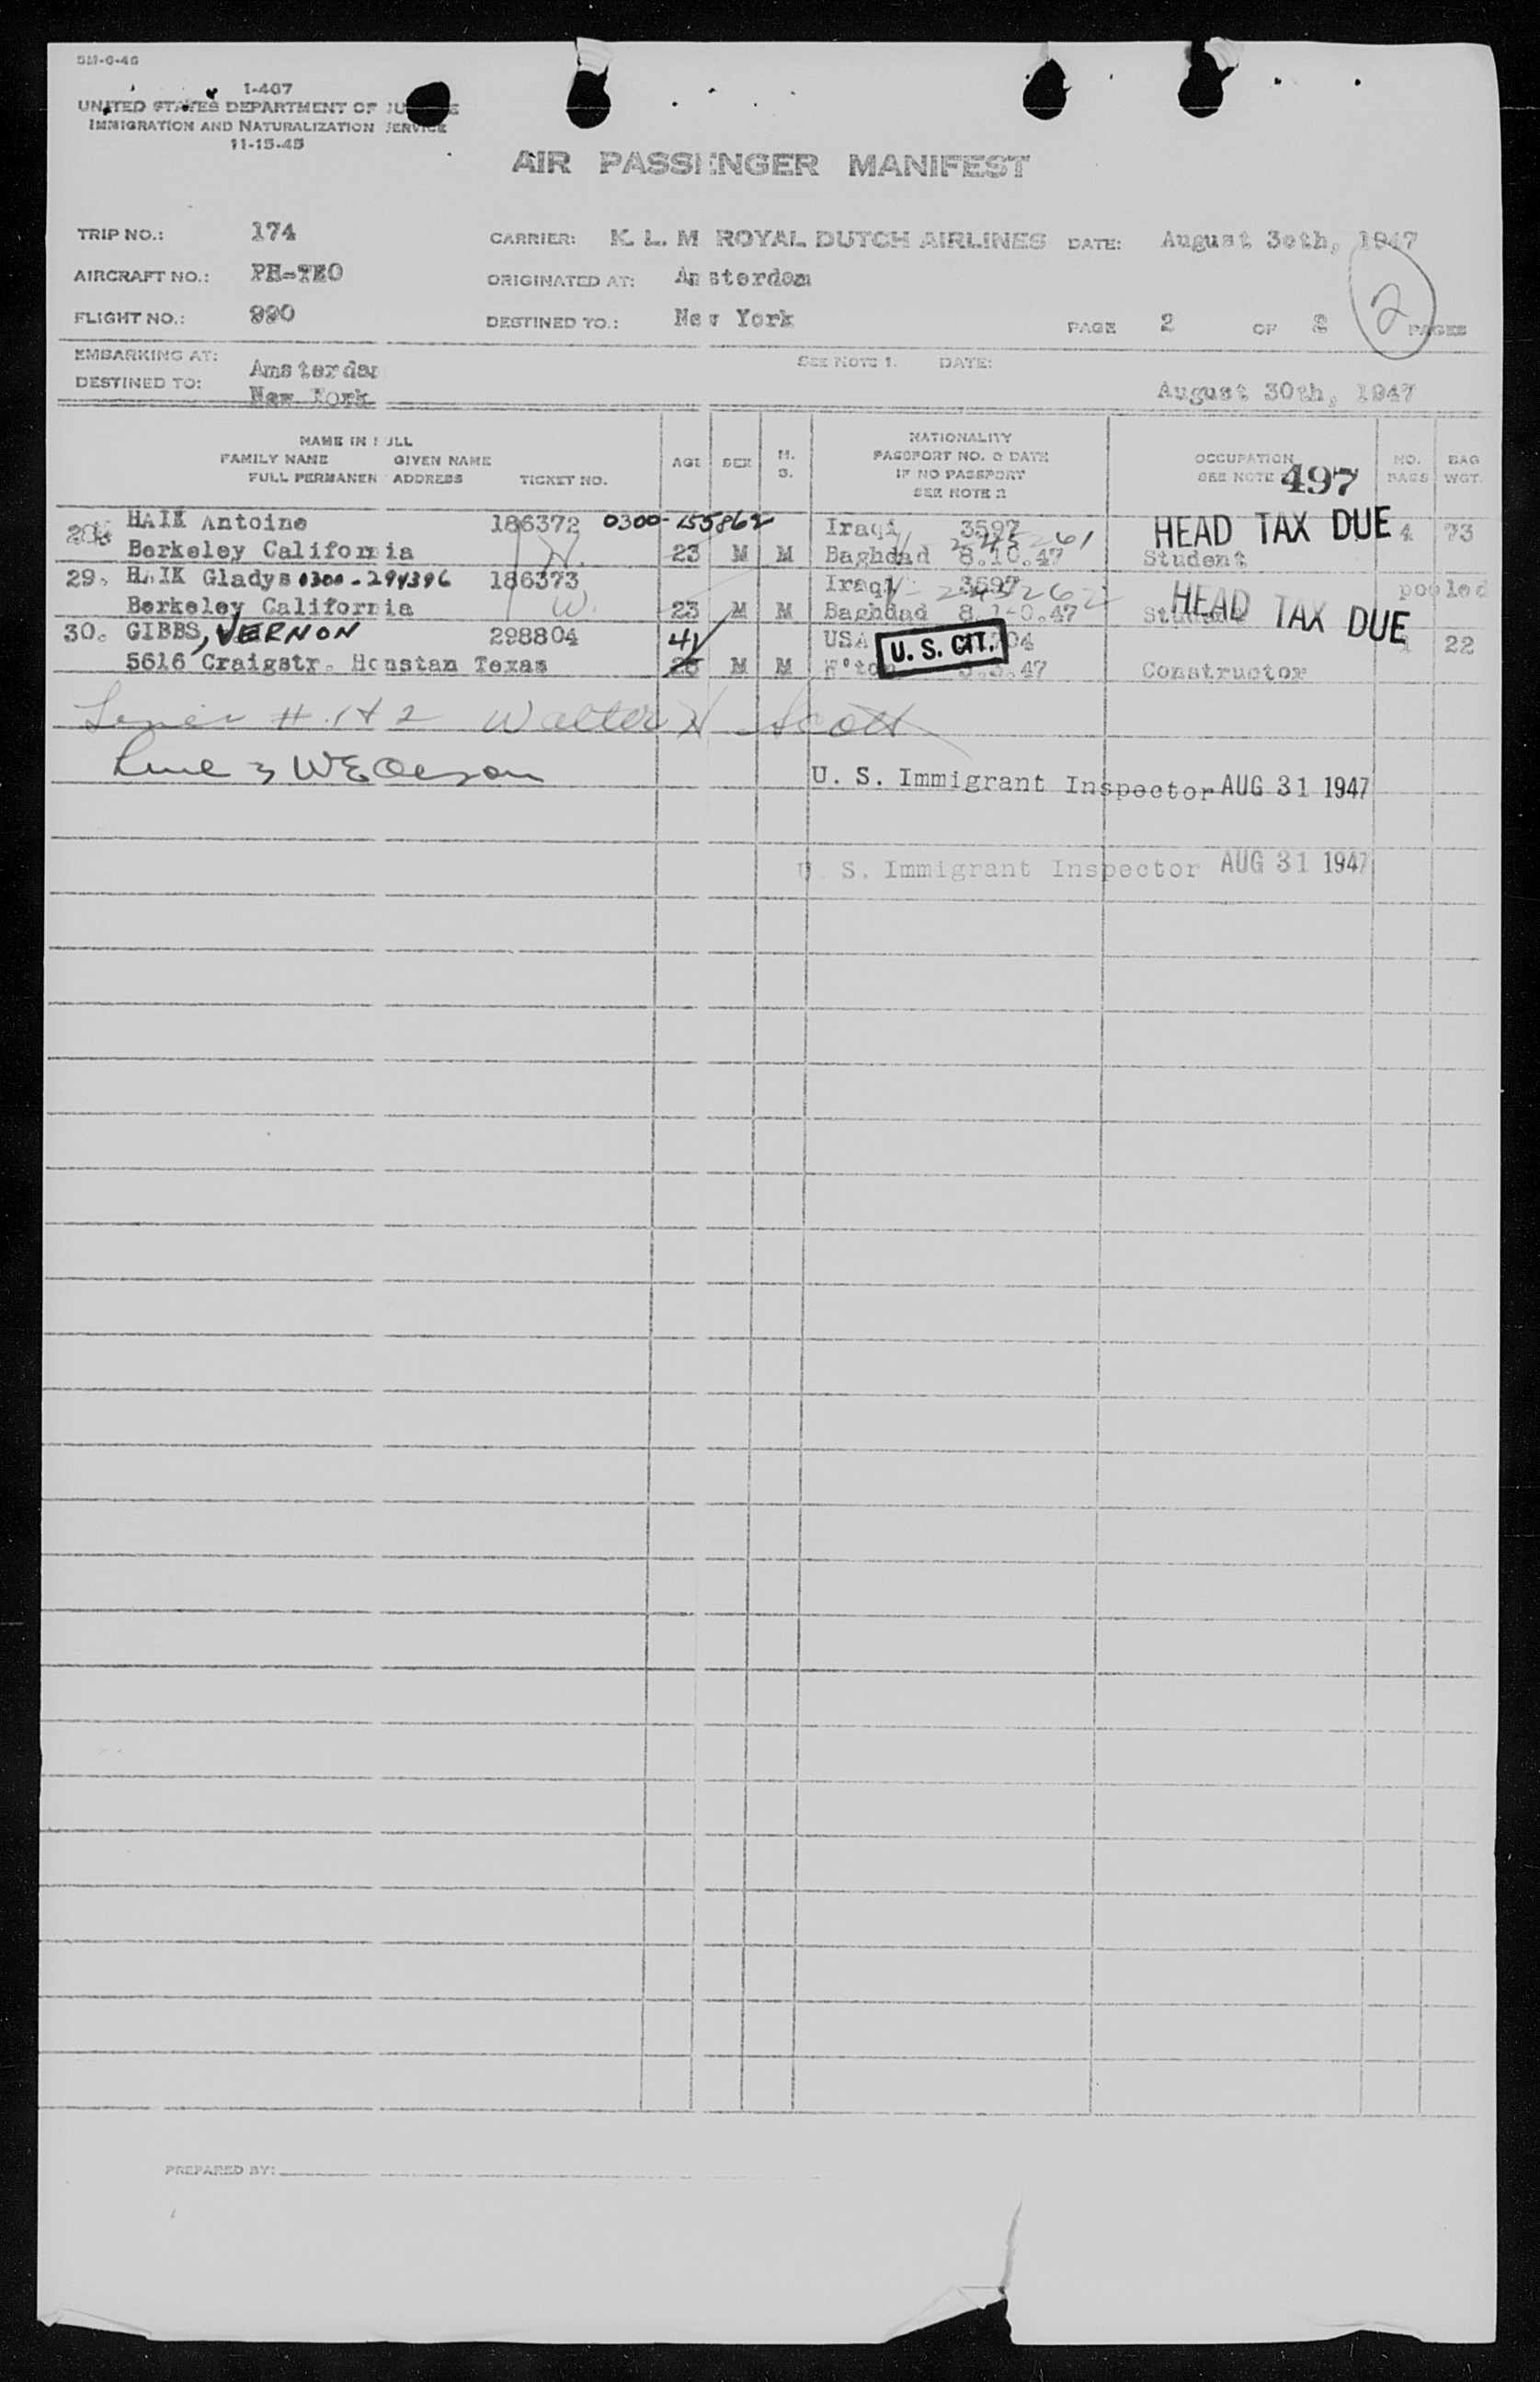 5M-6-46
I-467
UNITED STATES DEPARTMENT OF JUSTICE
IMMIGRATION AND NATURALIZATION SERVICE
11-15-45
AIR PASSENGER MANIFEST
TRIP NO.: 174 CARRIER: K. L. M ROYAL DUTCH AIRLINES DATE: August 30th, 1947
AIRCRAFT NO.: PH-TEO ORIGINATED AT: Amsterdam
FLIGHT NO.: 990 DESTINED TO.: New York PAGE 2 OF 2 PAGES 2
EMBARKING AT: Amsterdam SEE NOTE 1. DATE:
DESTINED TO: New York August 30th, 1947
NAME IN FULL
FAMILY NAME GIVEN NAME
FULL PERMANENT ADDRESS TICKET NO.
AGE SEX M. S.
NATIONALITY
PASSPORT NO. & DATE
IF NO PASSPORT
SEE NOTE 2
OCCUPATION
SEE NOTE 497
NO. BAGS
BAG WGT.
HAIK Antoine 186372 0300-155862 Iraqi 3597 HEAD TAX DUE 4 73
Berkeley California N. 23 M M Baghdad 8.10.47 Student
29. HAIK Gladys 0300-294396 186373 Iraqi 3597 V-245262 pooled
Berkeley California W. 23 M M Baghdad 8.1-0.47 Student HEAD TAX DUE
30. GIBBS, VERNON 298804 41 USA U. S. CIT. 1 22
5616 Craigstr. Houstan Texas M M W'ton 47 Constructor
Lines # 1 & 2 Walter H Scott
Line 3
U. S. Immigrant Inspector AUG 31 1947
U. S. Immigrant Inspector AUG 31 1947
PREPARED BY: